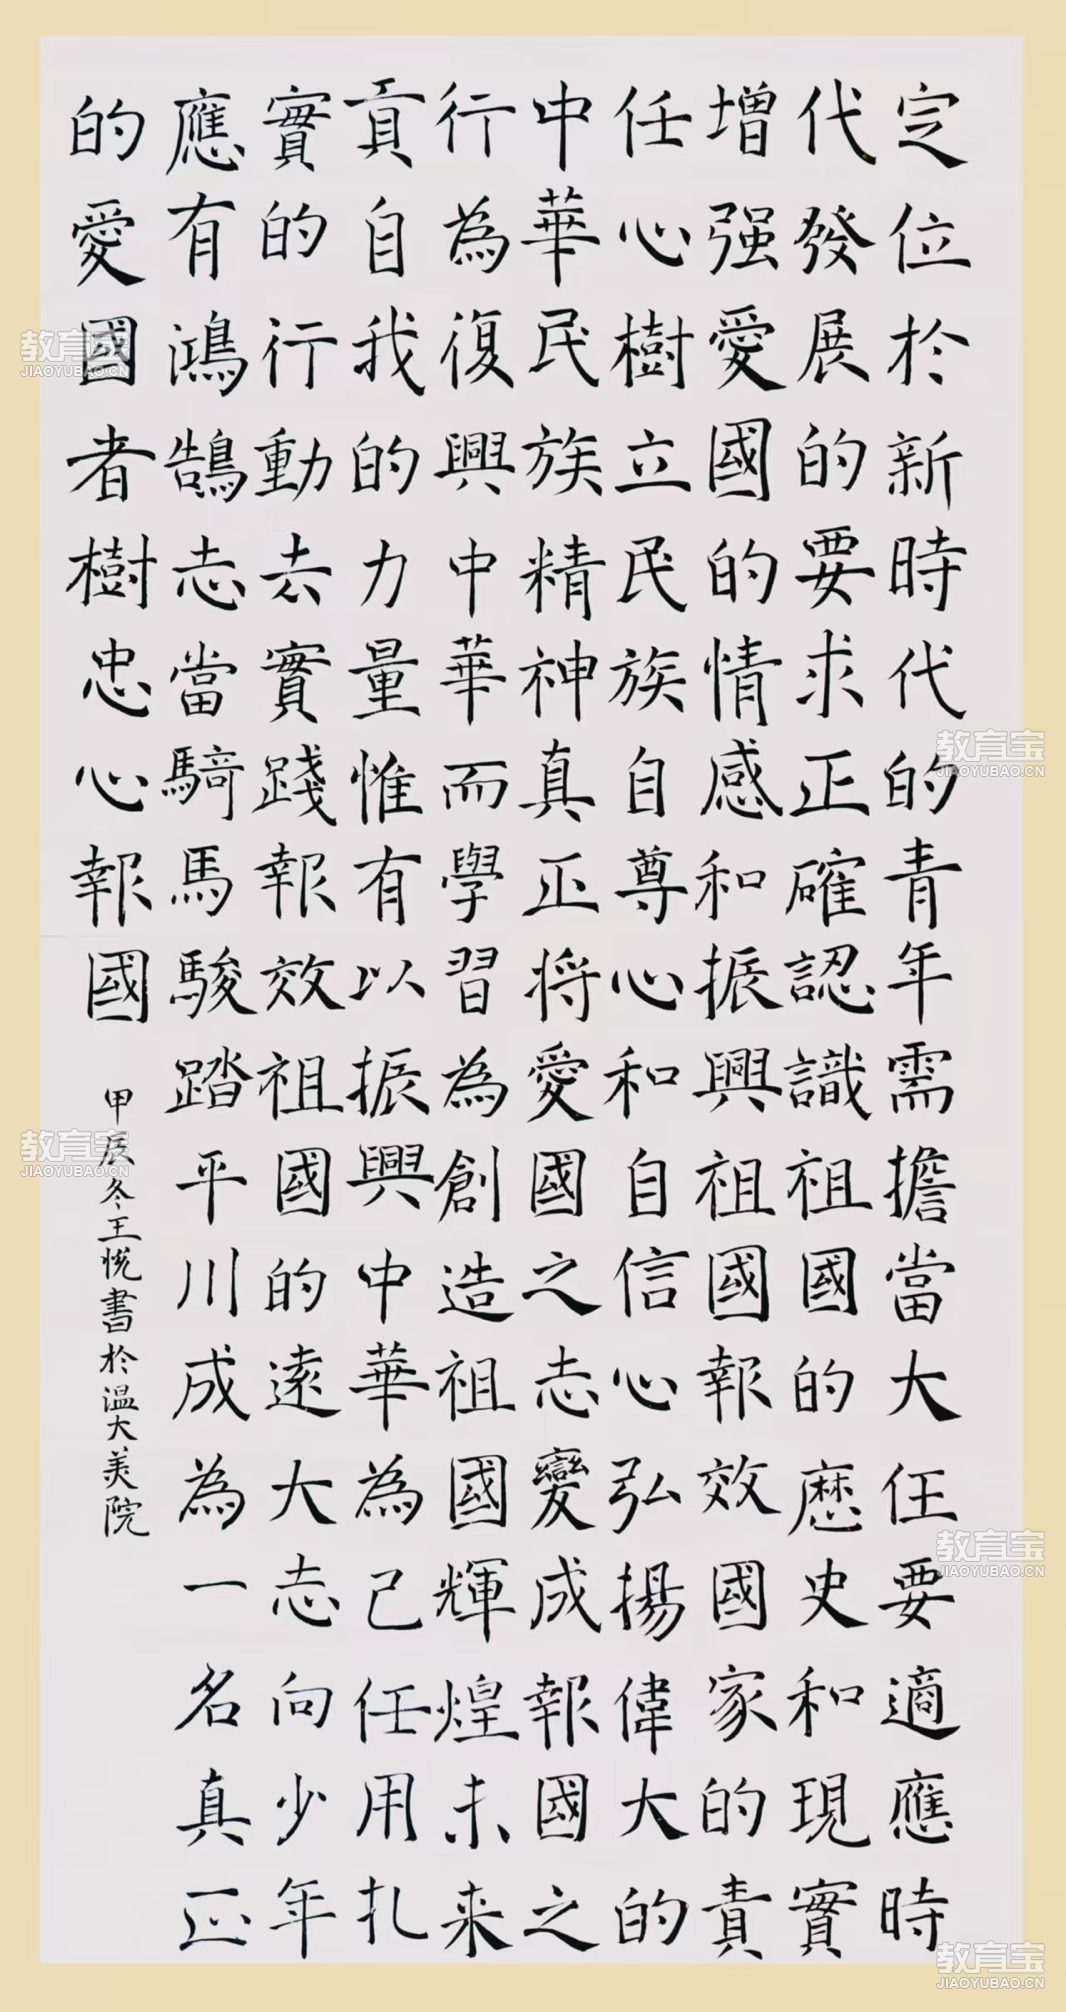 定位於新時代的青年需擔當大任要適應時
代發展的要求正確認識祖國的歷史和現實
增强愛國的情感和振興祖國報效國家的責
任心樹立民族自尊心和自信心弘揚偉大的
中華民族精神真正将愛國之志變成報國之
行為復興中華而學習為創造祖國輝煌未来
貢自我的力量惟有以振興中華為己任用扎
實的行動去實踐報效祖國的遠大志向少年
應有鴻鵠志當騎馬駿踏平川成為一名真正
的愛國者樹忠心報國
甲辰冬王悦書於温大美院
教育宝
JIAOYUBAO.CN
教育宝
JIAOYUBAO.CN
教育宝
JIAOYUBAO.CN
教育宝
JIAOYUBAO.CN
教育宝
JIAOYUBAO.CN